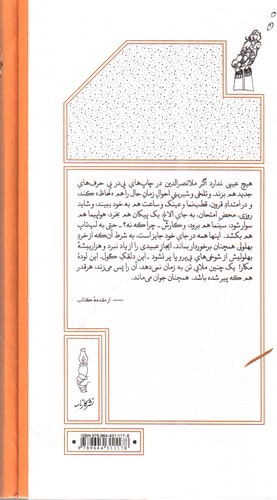 هیچ عیبی ندارد اگر ملانصرالدین در چاپ‌های پی‌در پی حرف‌های
جدید هم بزند. و تلخی و شیرینی احوال زمانِ حال را هم «لحاظ» کند،
و در امتدادِ قرون، قطب‌نما و عینک و ساعت هم به خود ببیند؛ و شاید
روزی، محض امتحان، به جای الاغ، یک پیکان هم بخرد، هواپیما هم
سوار شود؛ سینما هم برود، و کارش ـ چرا که نه؟ ـ حتی به لپ‌تاپ
هم بکشد. اینها همه در جای خود جایز است، به شرط آن‌که از خردِ
بهلولی همچنان برخوردار بماند، ایجاز عبیدی را از یاد نبرد و هزاربیشهٔ
بهلولیش از شوخی‌های بی‌پروا پر نشود. ـ این دلقکِ گول، این لودهٔ
مکار! یک چنین ملایی تن به زمان نمی‌دهد، آن را پس می‌زند؛ هرقدر
هم که پیر شده باشد. همچنان جوان می‌ماند.
— از مقدمهٔ کتاب
نشر کارنامه
ISBN 978-964-431-117-8
9789644311178